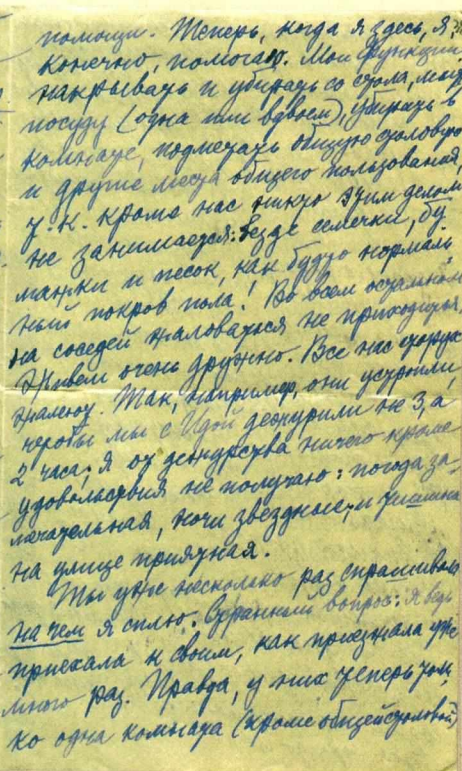 помощи. Теперь, когда я здесь, я,
конечно, помогаю. Мои функции
накрывать и убирать со стола, мыть
посуду (одна или вдвоем), убирать в
комнате, подметать общую столовую
и другие места общего пользования,
т.к. кроме нас никто этим делом
не занимается: везде семечки, бу
мажки и песок, как будто нормаль
ный покров пола! Во всем остальном
на соседей жаловаться не приходится,
Живем очень дружно. Все нас
жалеют. Так, например, они устроили,
чтобы мы с Идой дежурили не 3, а
2 часа; я от дежурства ничего кроме
удовольствия не получаю: погода за-
мечательная, ночи звездные, и тишина
на улице приятная.
Ты уже несколько раз спрашивал
на чем я сплю. Странный вопрос: я ведь
приехала к своим, как приезжала уже
много раз. Правда, у них теперь толь
ко одна комната (кроме общей столовой)